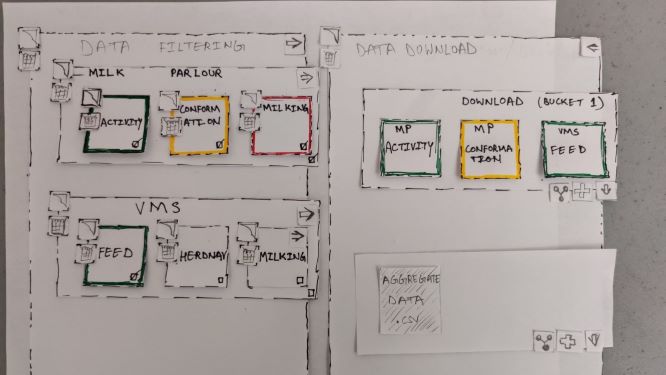 DATA FILTERING
MILK PARLOUR
ACTIVITY
CONFORM
ATION
MILKING
VMS
FEED
HERDNAV
MILKING
DATA DOWNLOAD
DOWNLOAD (BUCKET 1)
MP
ACTIVITY
MP
CONFORMA
TION
VMS
FEED
AGGREGATE
DATA
.CSV